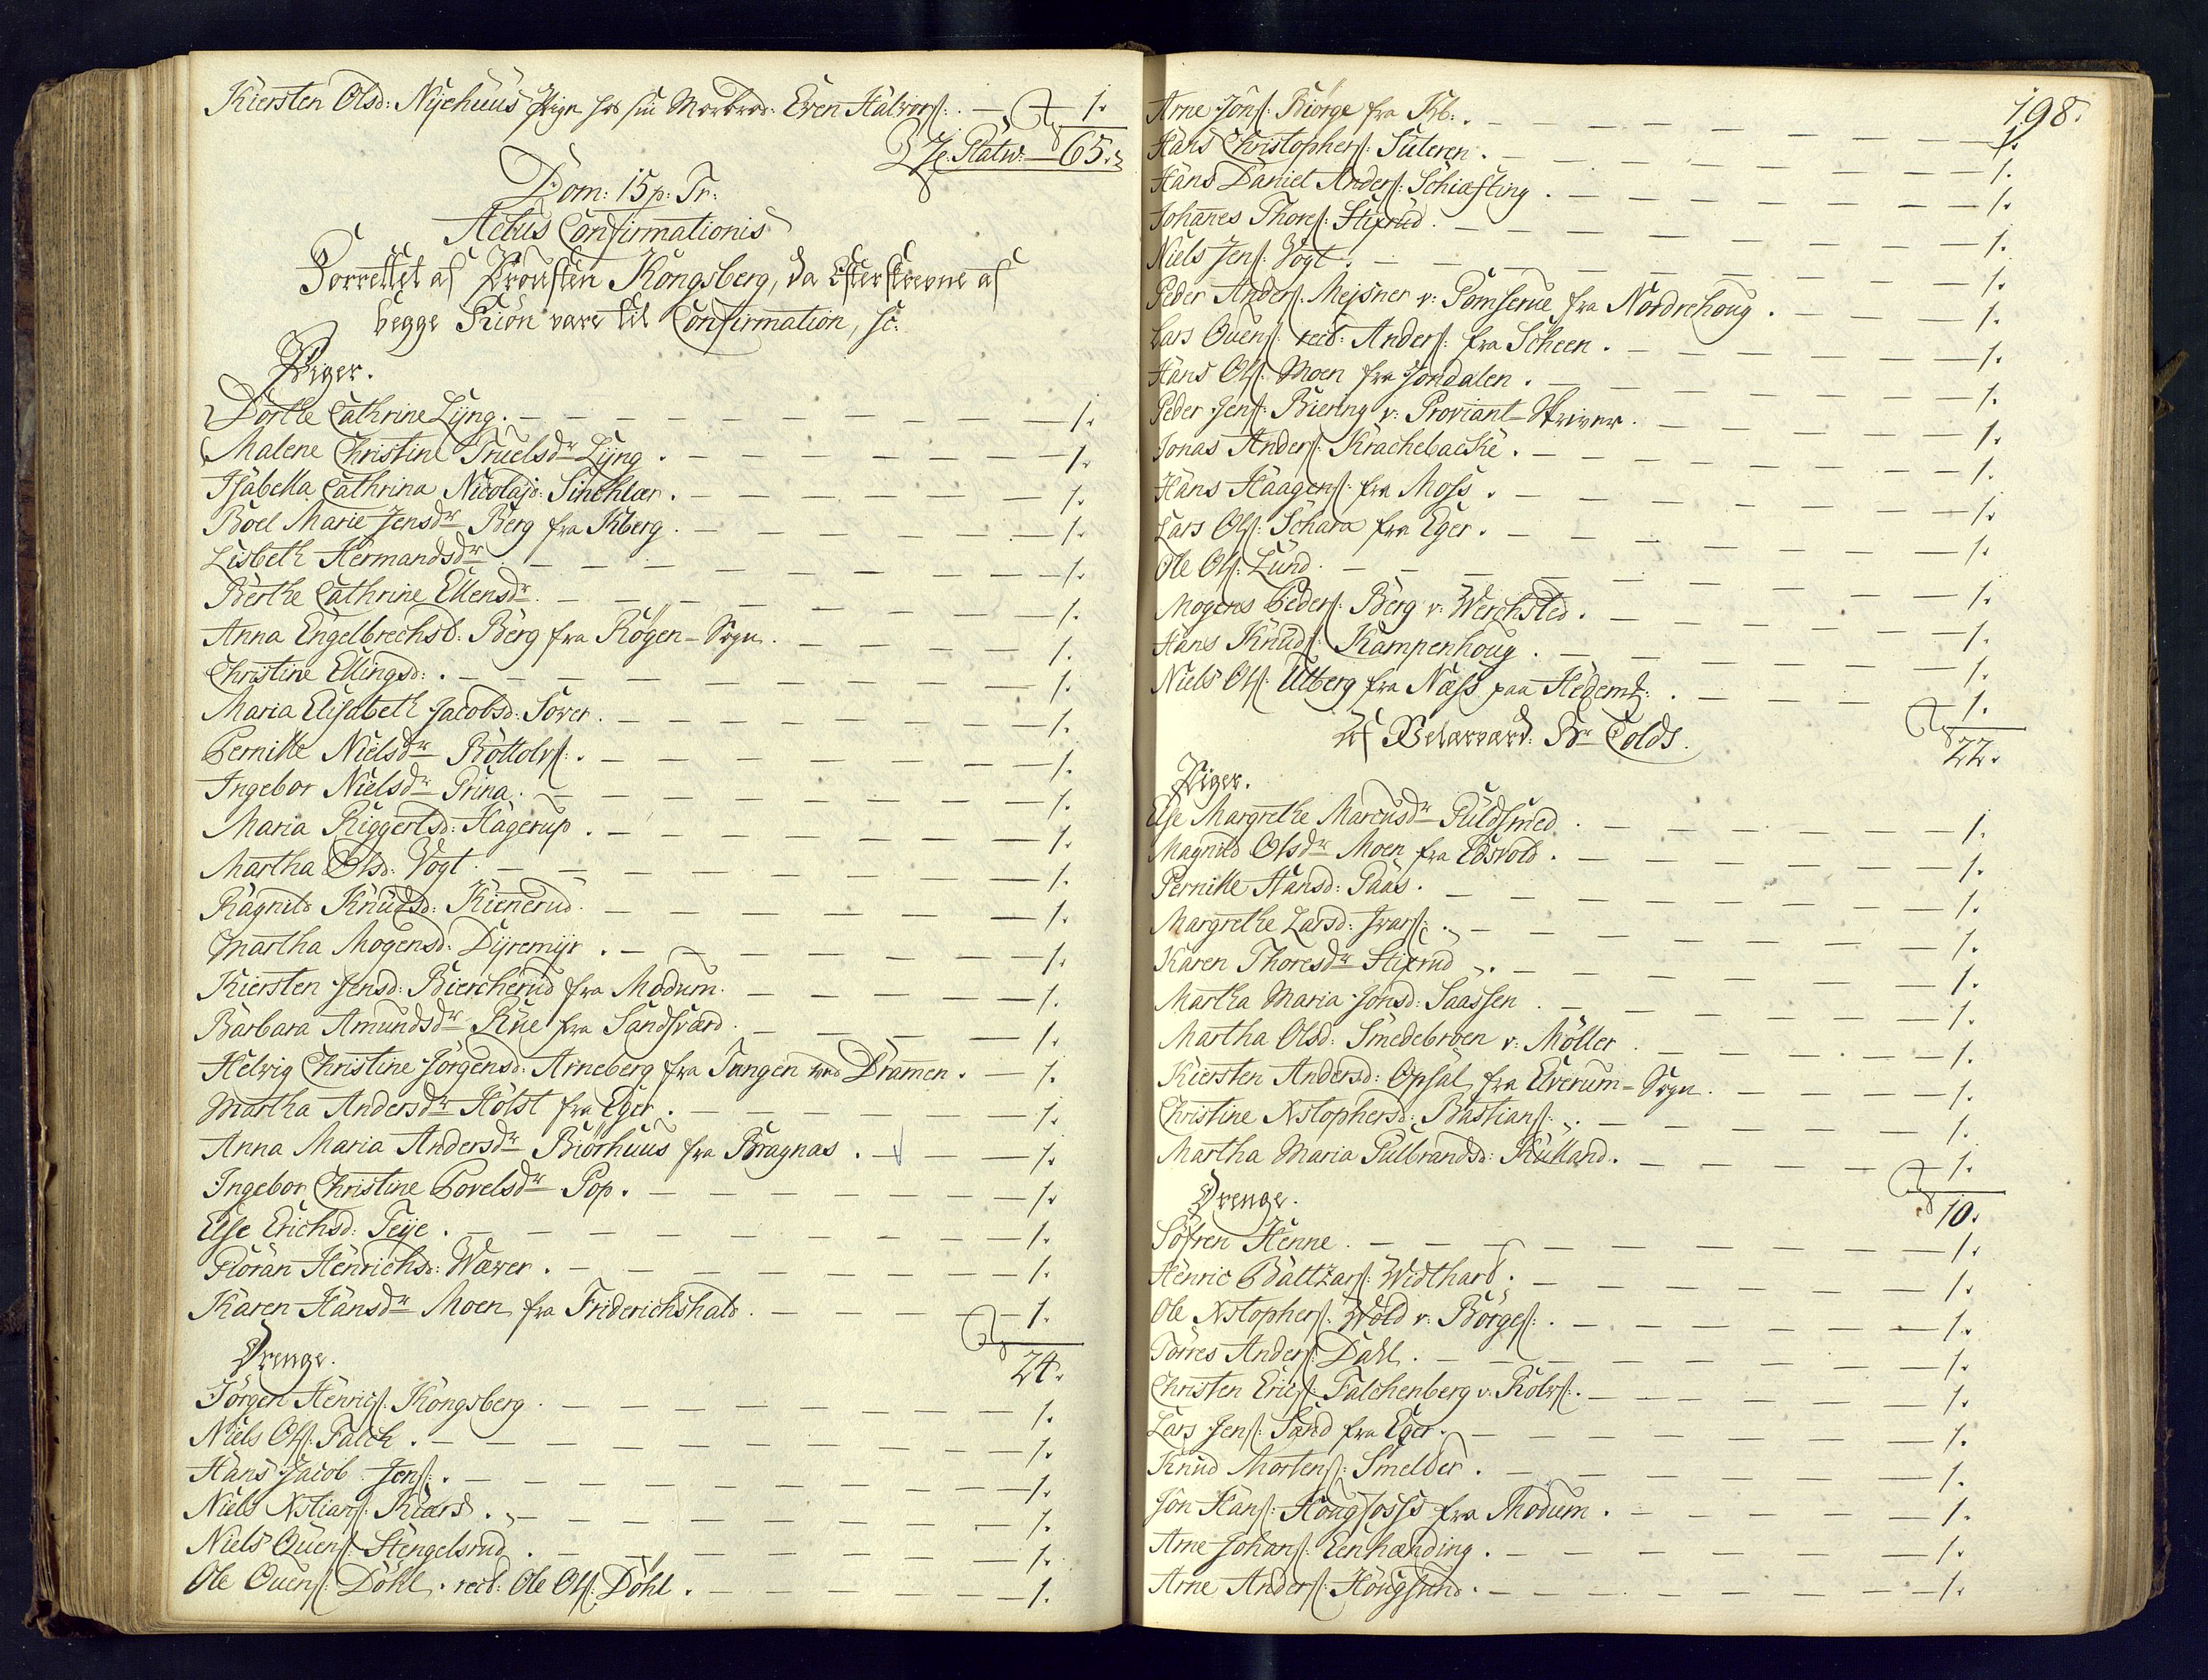 Kiersten Olsd: Nyehuus Pige hos sin Morbror: Even Halvors: . — 1.
65.
Dom: 15 p: Tr:
Actus Confirmationis
Forrettet af Prousten Kongsberg, da Efterskrevne af
begge Kiön vare til Confirmation, sc:
Piger.
Dorthe Cathrine Lyng. — 1.
Malene Christine Truelsdr Lyng . — 1.
Isabella Cathrina Nicolajd: Sinchlær . — 1.
Boel Marie Jensdr Berg fra Kberg . — 1.
Lisbeth Hermandsdr . — 1.
Berthe Cathrine Ellensdr. — 1.
Anna Engelbrechsd: Berg fra Rögen-Sogn . — 1.
Christine Ellingsd: . — 1.
Maria Elisabeth Jacobsd: Sover . — 1.
Pernille Nielsdr Bottolvs: . — 1.
Ingebor Nielsdr Prina . — 1.
Maria Riggertsd: Hagerup . — 1.
Martha Olsd: Vogt . — 1.
Ragnild Knudsd: Kienerud . — 1.
Martha Mogensd: Dyremyr . — 1.
Kiersten Jensd: Biercherud fra Modum . — 1.
Barbara Amundsdr Rue fra Sandsværd . — 1.
Helvig Christine Jörgensd: Arneberg fra Tangen ved Dramen . — 1.
Martha Andersdr Holst fra Eger . — 1.
Anna Maria Andersdr Biörhuus fra Bragnæs . — 1.
Ingebor Christine Povelsdr Pop . — 1.
Else Erichsd: Teye . — 1.
Floran Henrichsd: Wæver . — 1.
Karen Hansdr Moen fra Friderichshald . — 1.
24.
Drenge.
Jörgen Henrics: Kongsberg . — 1.
Niels Ols: Falck . — 1.
Hans Jacob Jens: . — 1.
Niels Xstians: Kiærs . — 1.
Niels Ouens: Stengelsrud . — 1.
Ole Ouens: Döhl . rect: Ole Ols: Döhl . — 1.
198.
Arne Jons: Biörge fra Kb: . — 1.
Hans Christophers: Suteren . — 1.
Hans Daniel Anders: Schiæfting . — 1.
Johanes Thores: Stixrud . — 1.
Niels Jens: Vogt . — 1.
Peder Anders: Mejsner v: Pomserue fra Nordrehoug . — 1.
Lars Ouens: rect: Anders: fra Scheen . — 1.
Hans Ols: Moen fra Jondalen . — 1.
Peder Jens: Biering v: Proviant-Skriver . — 1.
Jonas Anders: Krachebacke . — 1.
Hans Haagens: fra Moss . — 1.
Lars Ols: Schara fra Eger . — 1.
Ole Ols: Lund . — 1.
Mogens Peders: Berg v: Werchsted . — 1.
Hans Knuds: Kampenhoug . — 1.
Niels Ols: Ulberg fra Næss paa Hedem: . — 1.
22.
Colds.
Piger.
Else Margrethe Marcusdr Guldsmed . — 1.
Magnild Olsdr Moen fra Edsvold . — 1.
Pernille Hansd: Paas . — 1.
Margrethe Larsd: Ivars: . — 1.
Karen Thoresdr Stixrud . — 1.
Martha Maria Jonsd: Saassen . — 1.
Martha Olsd: Smedebroen v: Möller . — 1.
Kiersten Andersd: Opsal fra Elverum-Sogn . — 1.
Christine Xstophersd: Bastians: . — 1.
Martha Maria Gulbrandsd: Rulland . — 1.
10.
Drenge.
Söfren Henne . — 1.
Henric Baltzars: Widthard . — 1.
Ole Xstophers: Wold v: Börges: . — 1.
Torres Anders: Dahl . — 1.
Christen Erics: Falchenberg v: Rolvs: . — 1.
Lars Jens: Sand fra Eger . — 1.
Knud Mortens: Smelder . — 1.
Jon Hans: Hougfosss fra Modum . — 1.
Arne Johans: Eenhænding . — 1.
Arne Anders: Hougsund . — 1.